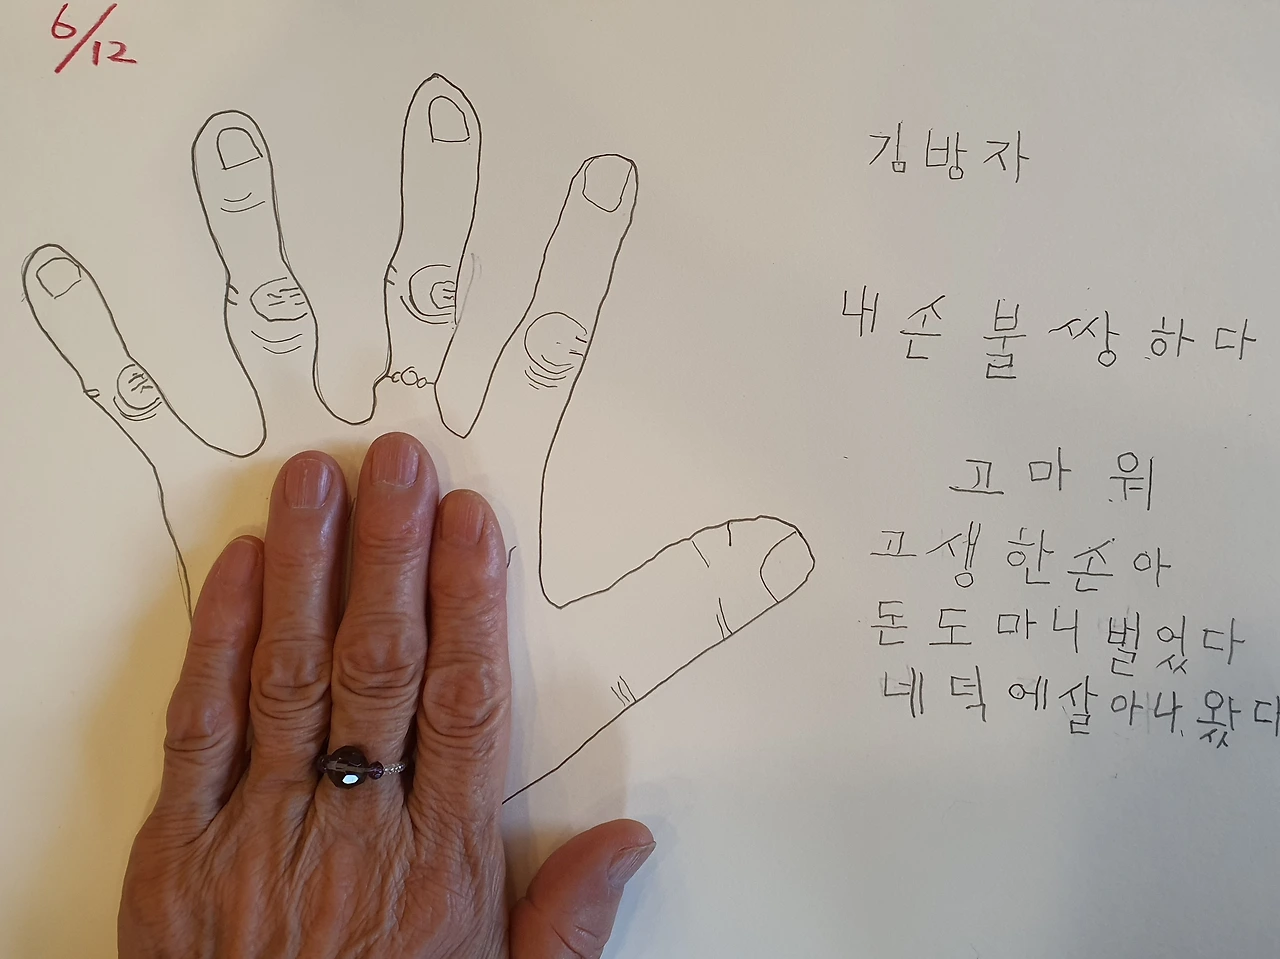 6/12
김방자
내 손 불쌍하다
고마워
고생한손아
돈도마니벌었다
네덕에살아나왔다